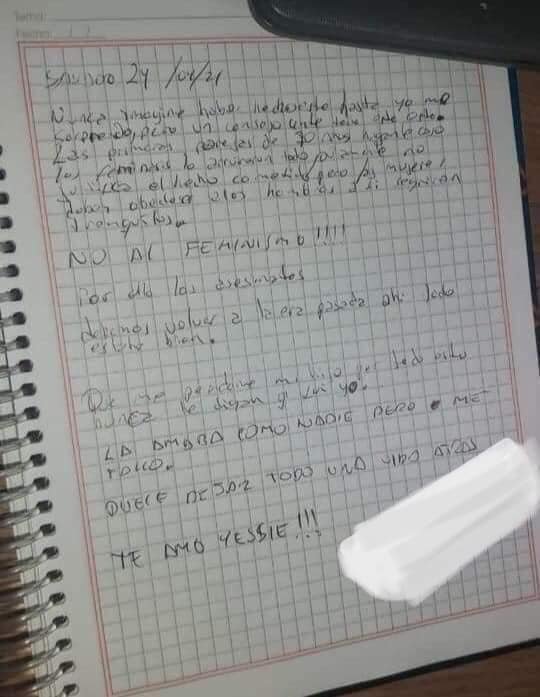 Tema:
Fecha:
Sábado 24 /04/21
Nunca imagine haber hecho esto hasta yo me
sorprendo, pero un consejo ante todo que
Las primeras de 30
las feministas lo arruinaron todo
el hecho cometido pero las mujeres
deben obedecer a los hombres
NO AL FEMINISMO!!!!
Por ello las asesinadas
debemos volver a la era pasada ahi todo
estaba bien.
Que me perdone mi hijo por todo esto
nunca le digan q fui yo.
LA AMABA COMO NADIE PERO ME
TOCO.
DUELE DEJAR TODO UNA VIDA ATRAS
TE AMO YESSIE!!!